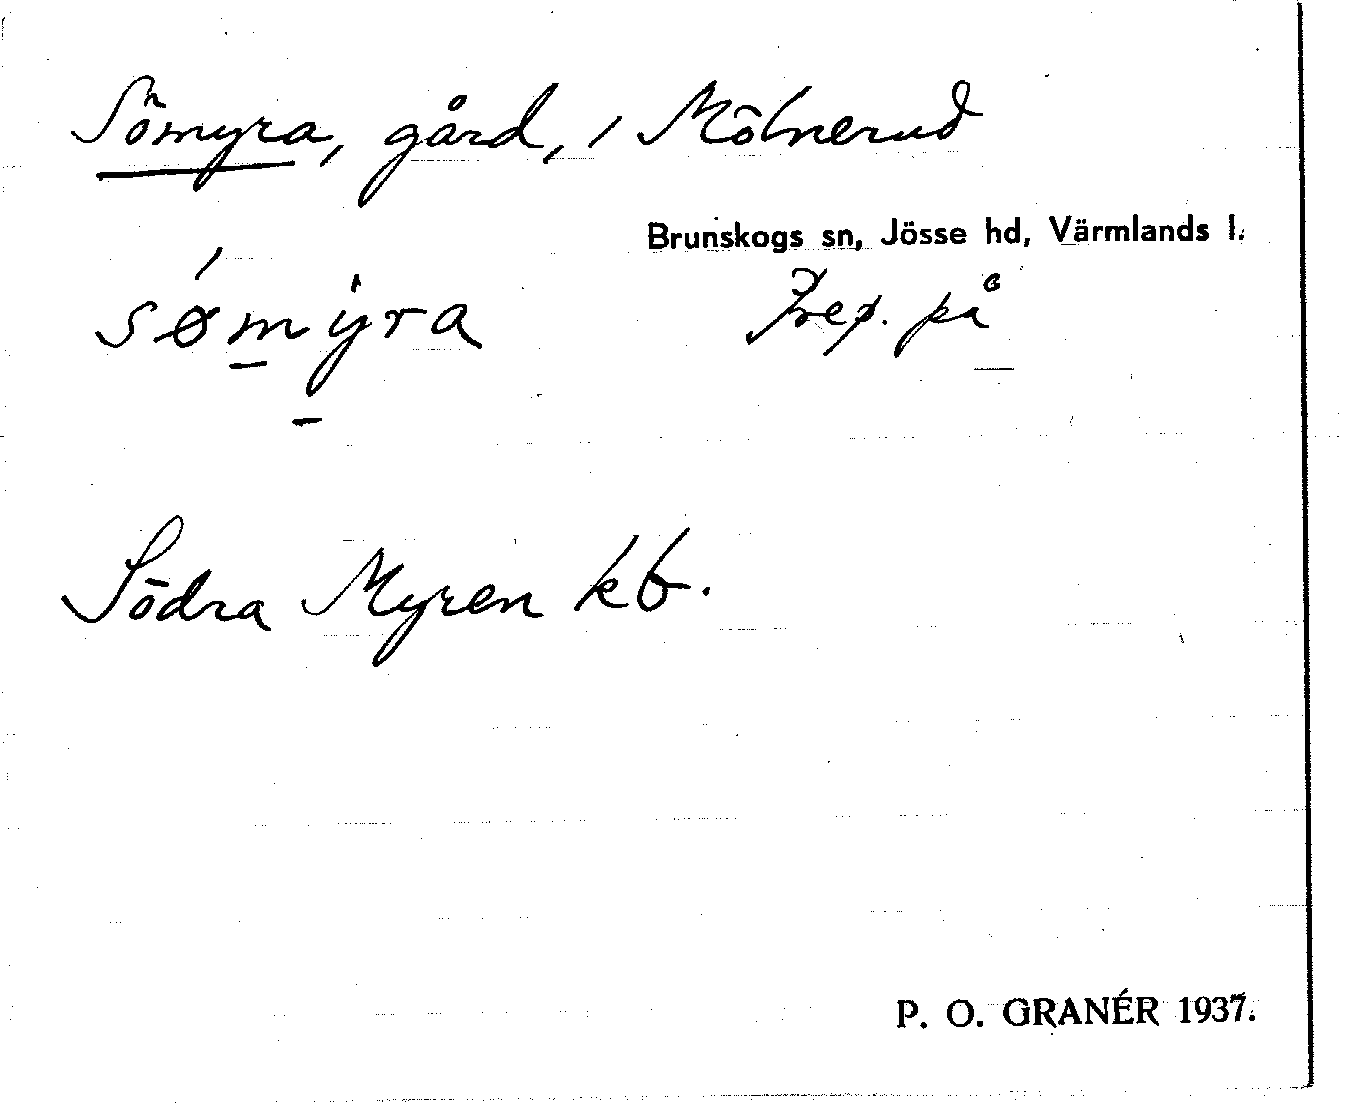 Sömyra, gård, i Mölnerud
Brunskogs sn, Jösse hd, Värmlands l.
sømyra Prep. på
Södra Myren kb.
P. O. GRANÉR 1937.